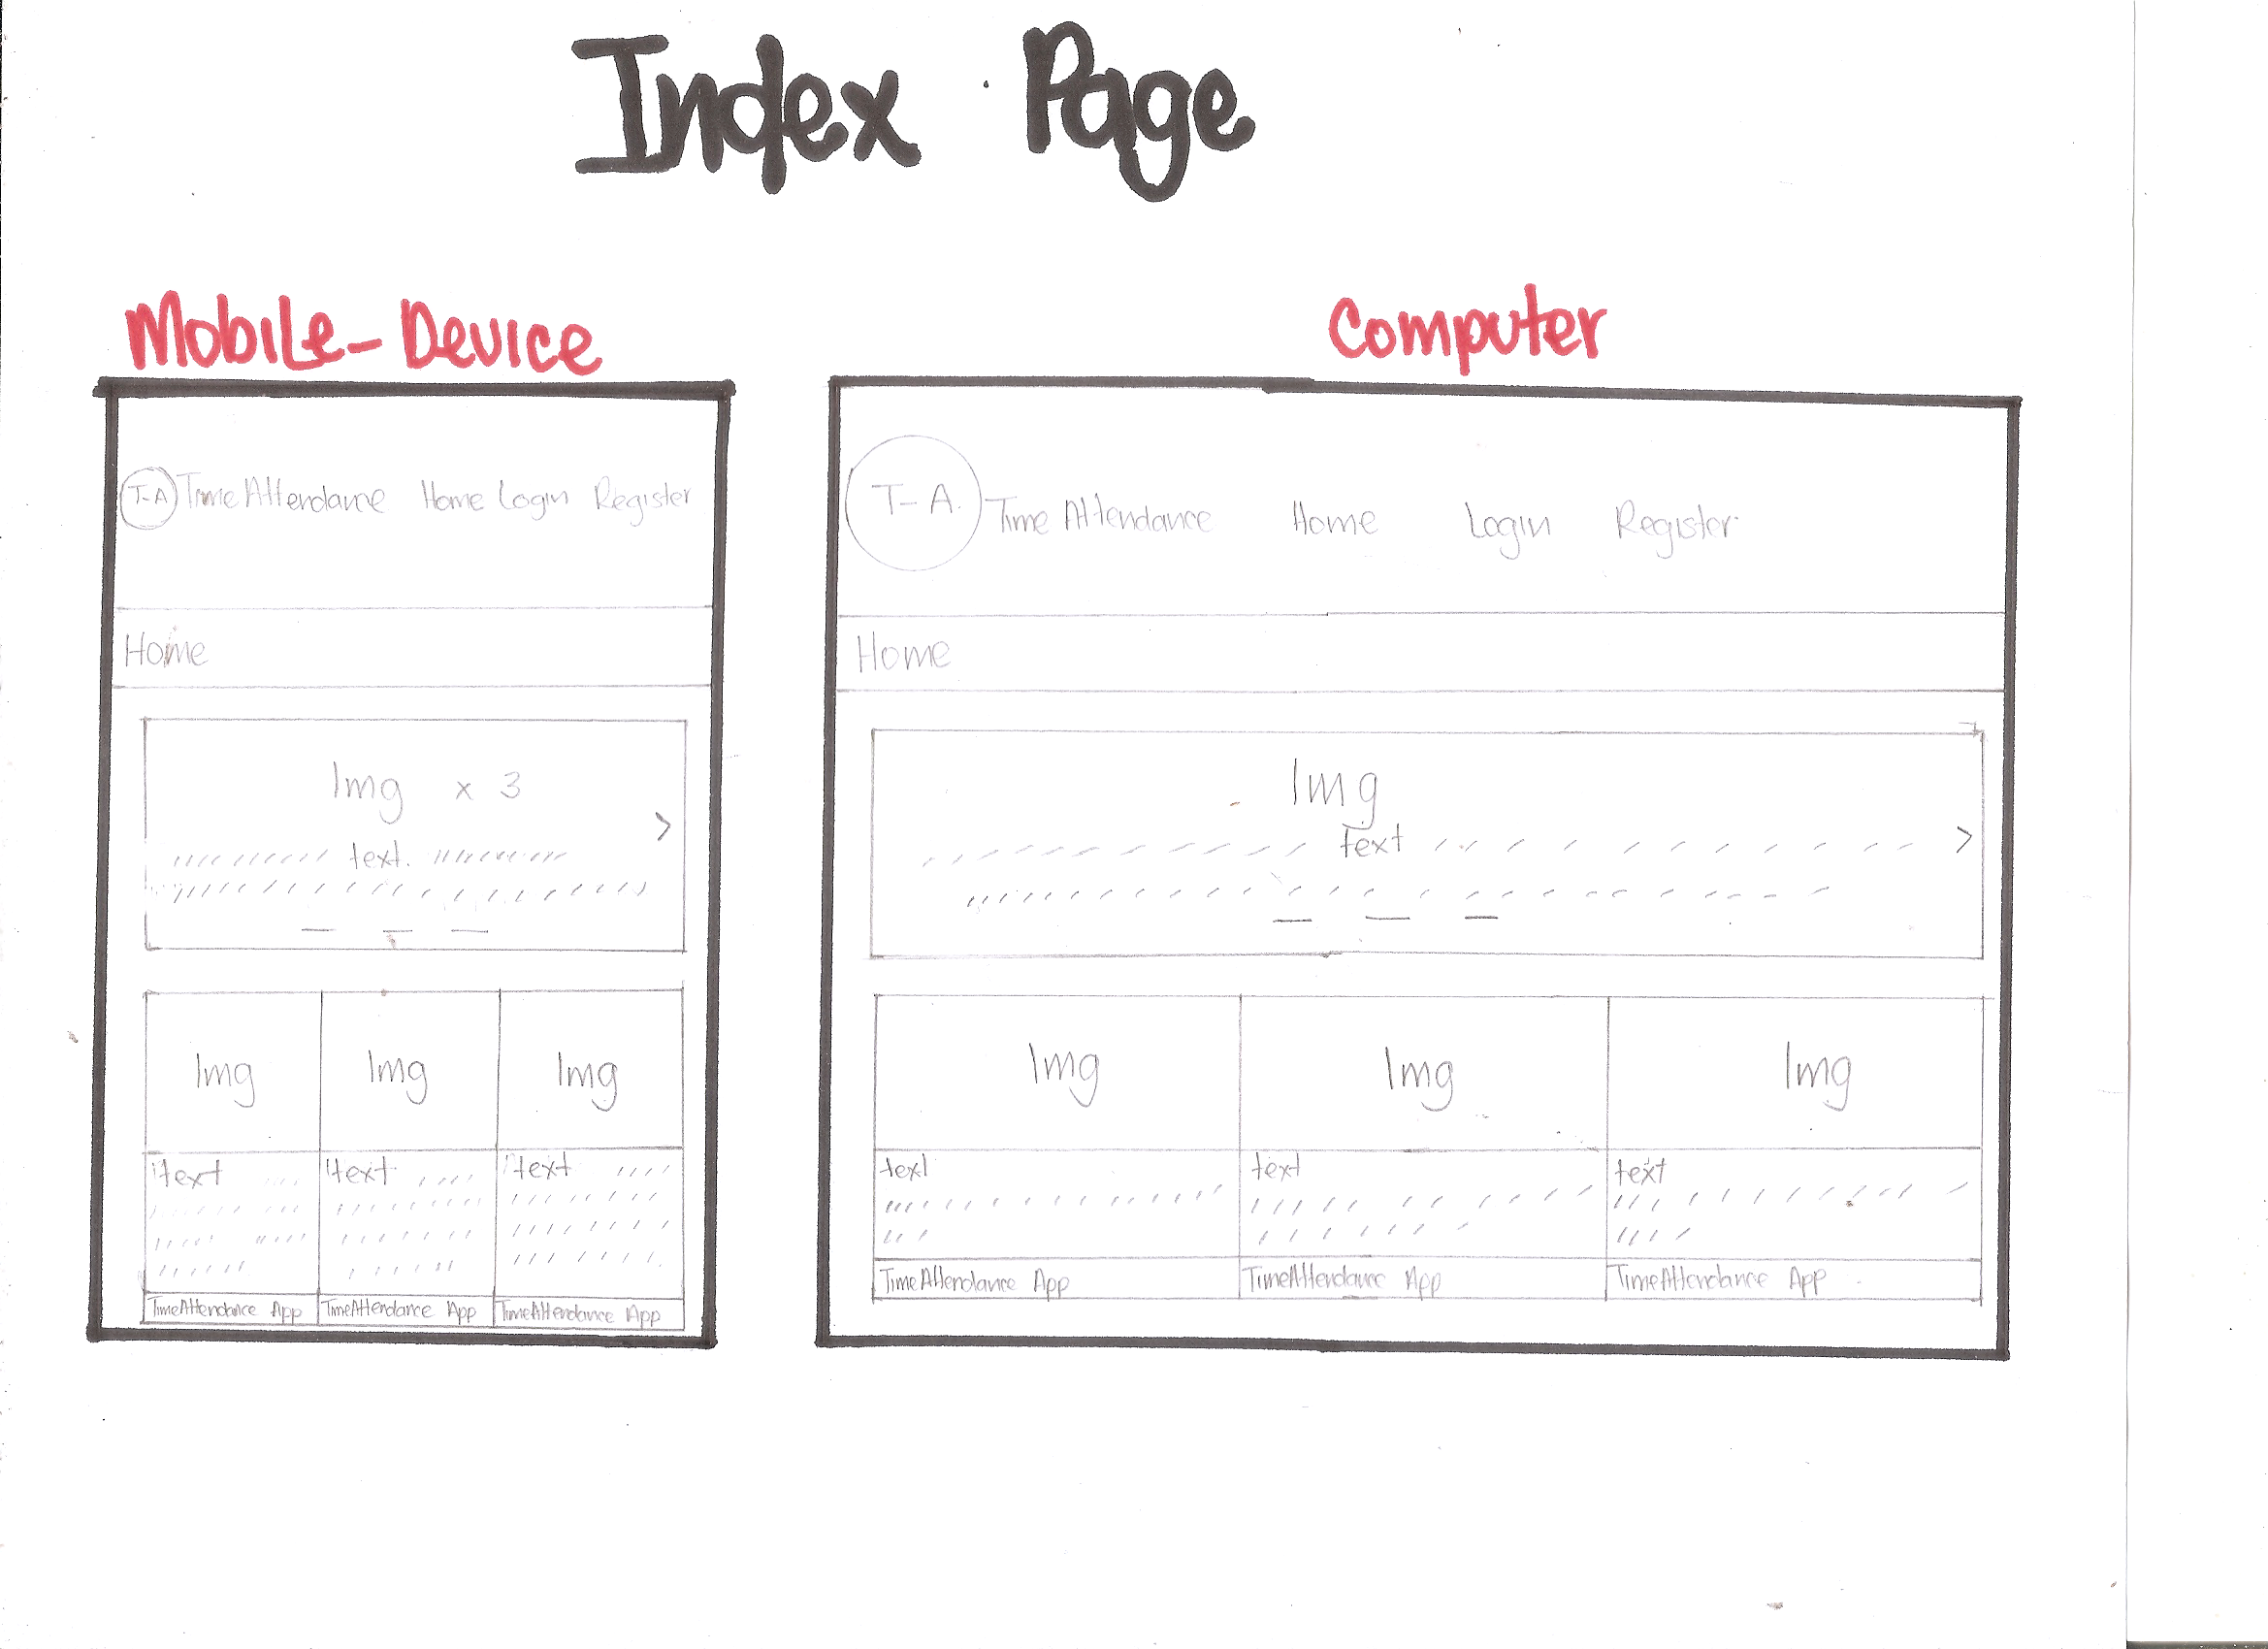 Index Page
Mobile-Device
T-A Time Attendance Home Login Register
Home
Img x 3
text.
>
Img Img Img
text text text
TimeAttendance App TimeAttendance App TimeAttendance App
Computer
T-A. Time Attendance Home Login Register
Home
Img
text
>
Img Img Img
text text text
TimeAttendance App TimeAttendance App TimeAttendance App